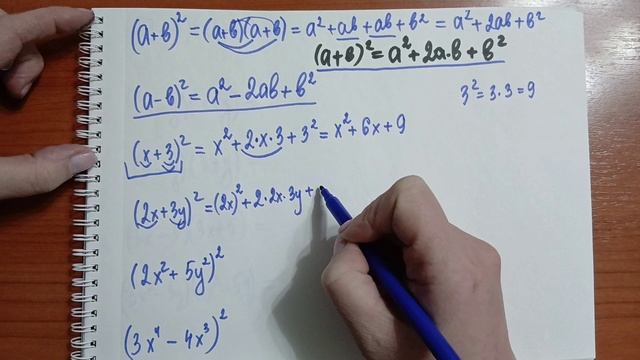 (a+b)² = (a+b)(a+b) = a² + ab + ab + b² = a² + 2ab + b²
(a+b)² = a² + 2a·b + b²
(a-b)² = a² - 2ab + b²
3² = 3·3 = 9
(x+3)² = x² + 2·x·3 + 3² = x² + 6x + 9
(2x+3y)² = (2x)² + 2·2x·3y +
(2x² + 5y²)²
(3x⁴ - 4x³)²